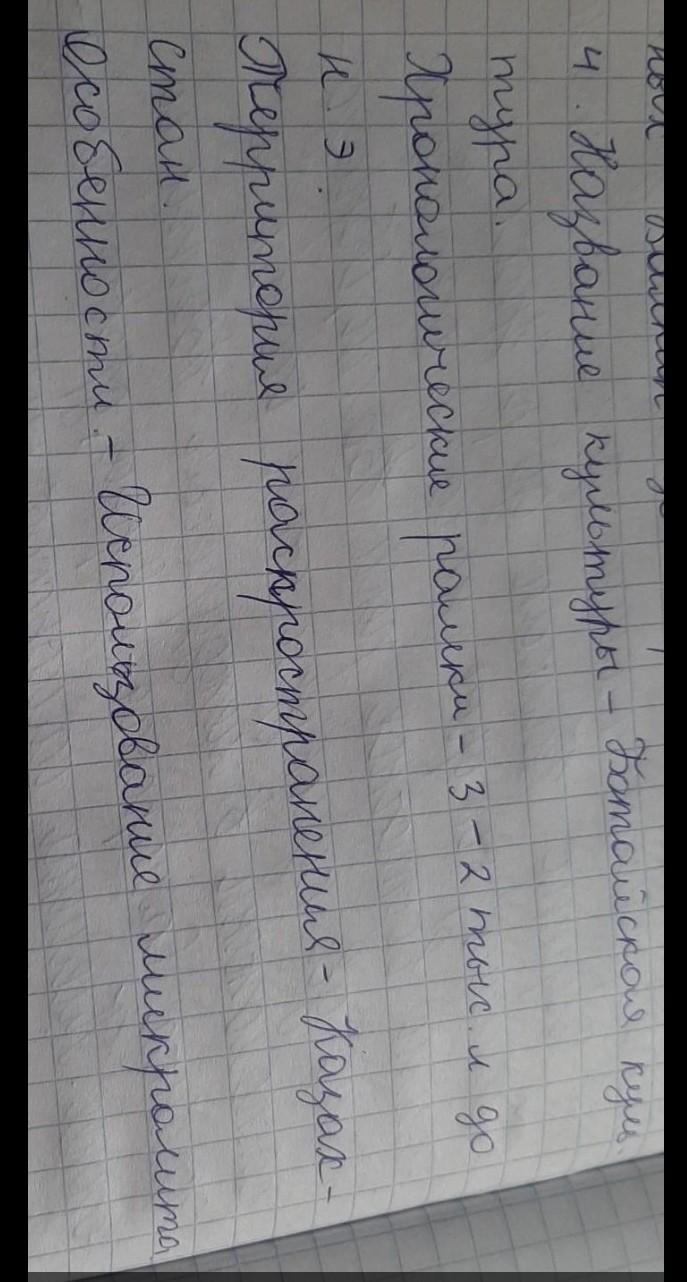 4. Название культуры - Ботайская куль
тура.
Хронологические рамки - 3 - 2 тыс. л до
н. э.
Территория распространения - Казах-
стан.
Особенности. - Использование микролита